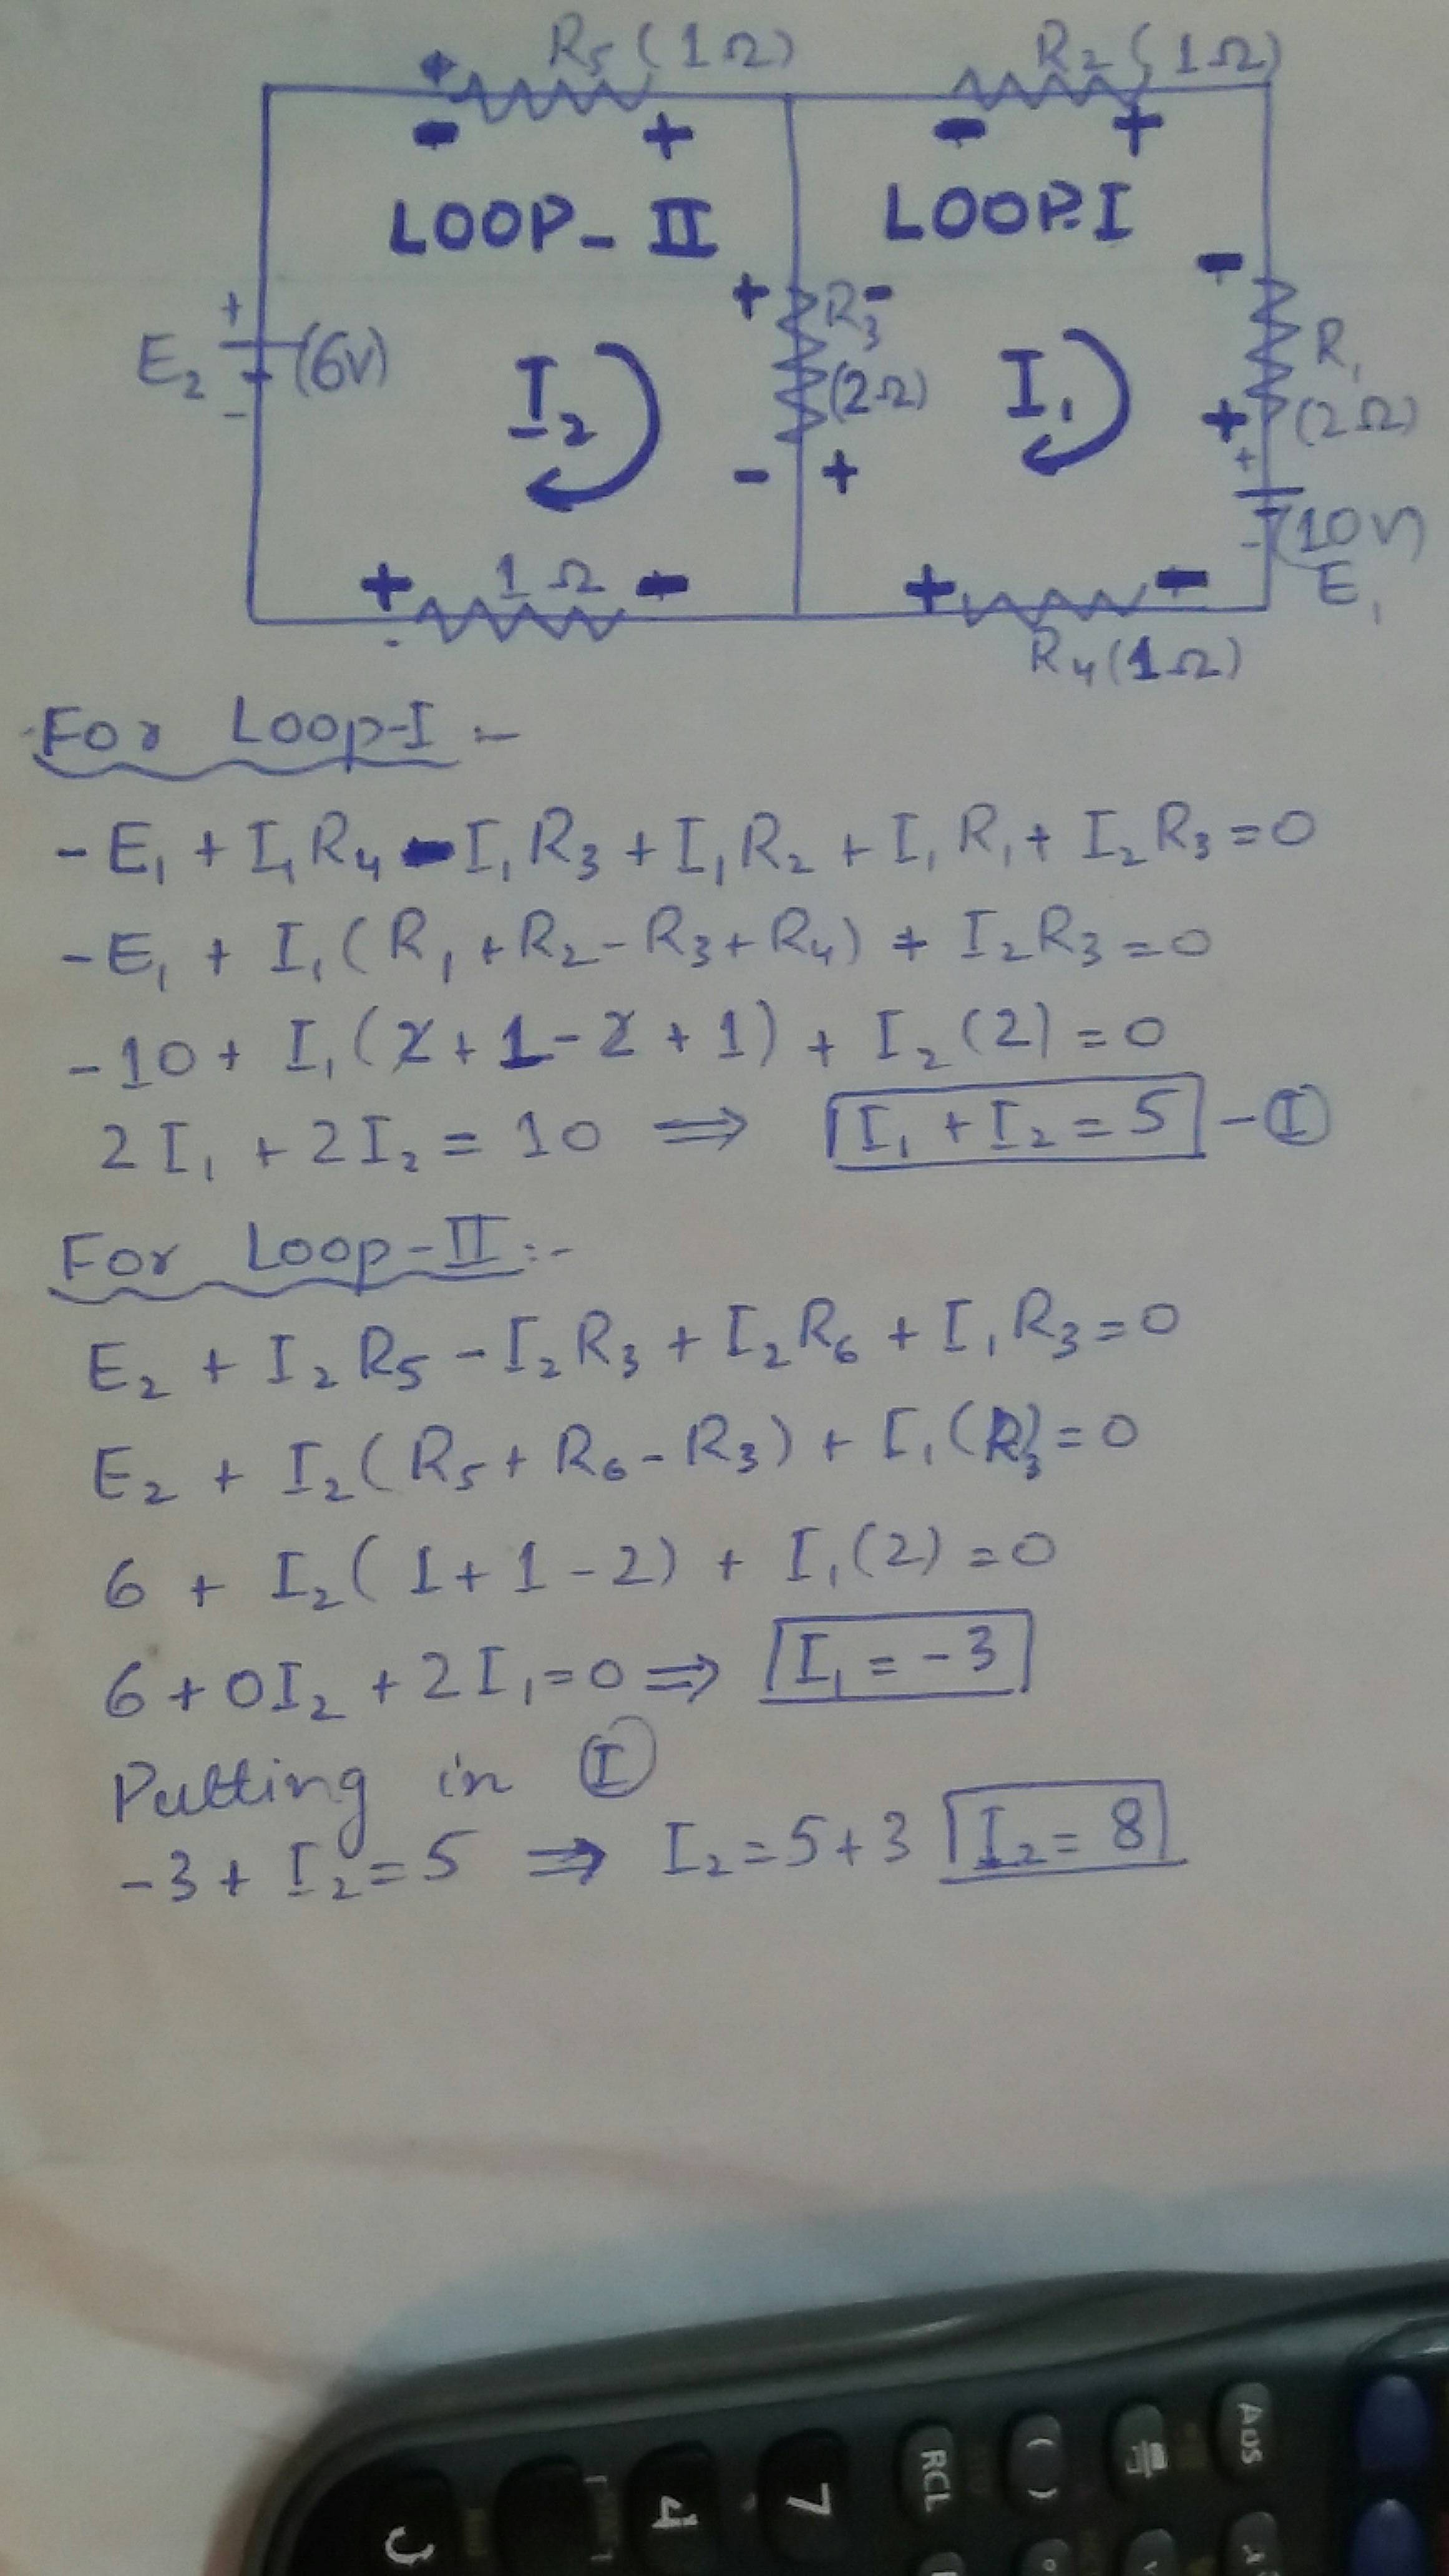 R5 (1Ω) R2 (1Ω)
+
- + - +
LOOP-II LOOP.I
-
+ + R3 -
E2 (6V) I2 (2Ω) I1 R1
- + (2Ω)
- + +
(10V)
+ 1Ω - + - - E1
R4 (1Ω)
For Loop-I :-
-E1 + I1R4 - I1R3 + I1R2 + I1R1 + I2R3 = 0
-E1 + I1(R1 + R2 - R3 + R4) + I2R3 = 0
-10 + I1(2 + 1 - 2 + 1) + I2(2) = 0
2I1 + 2I2 = 10 ⟹ I1 + I2 = 5 - Ⓘ
For Loop-II :-
E2 + I2R5 - I2R3 + I2R6 + I1R3 = 0
E2 + I2(R5 + R6 - R3) + I1(R3) = 0
6 + I2(1 + 1 - 2) + I1(2) = 0
6 + 0I2 + 2I1 = 0 ⟹ I1 = -3
Putting in Ⓘ
-3 + I2 = 5 ⟹ I2 = 5 + 3 I2 = 8
Ans
( )
RCL
7
4